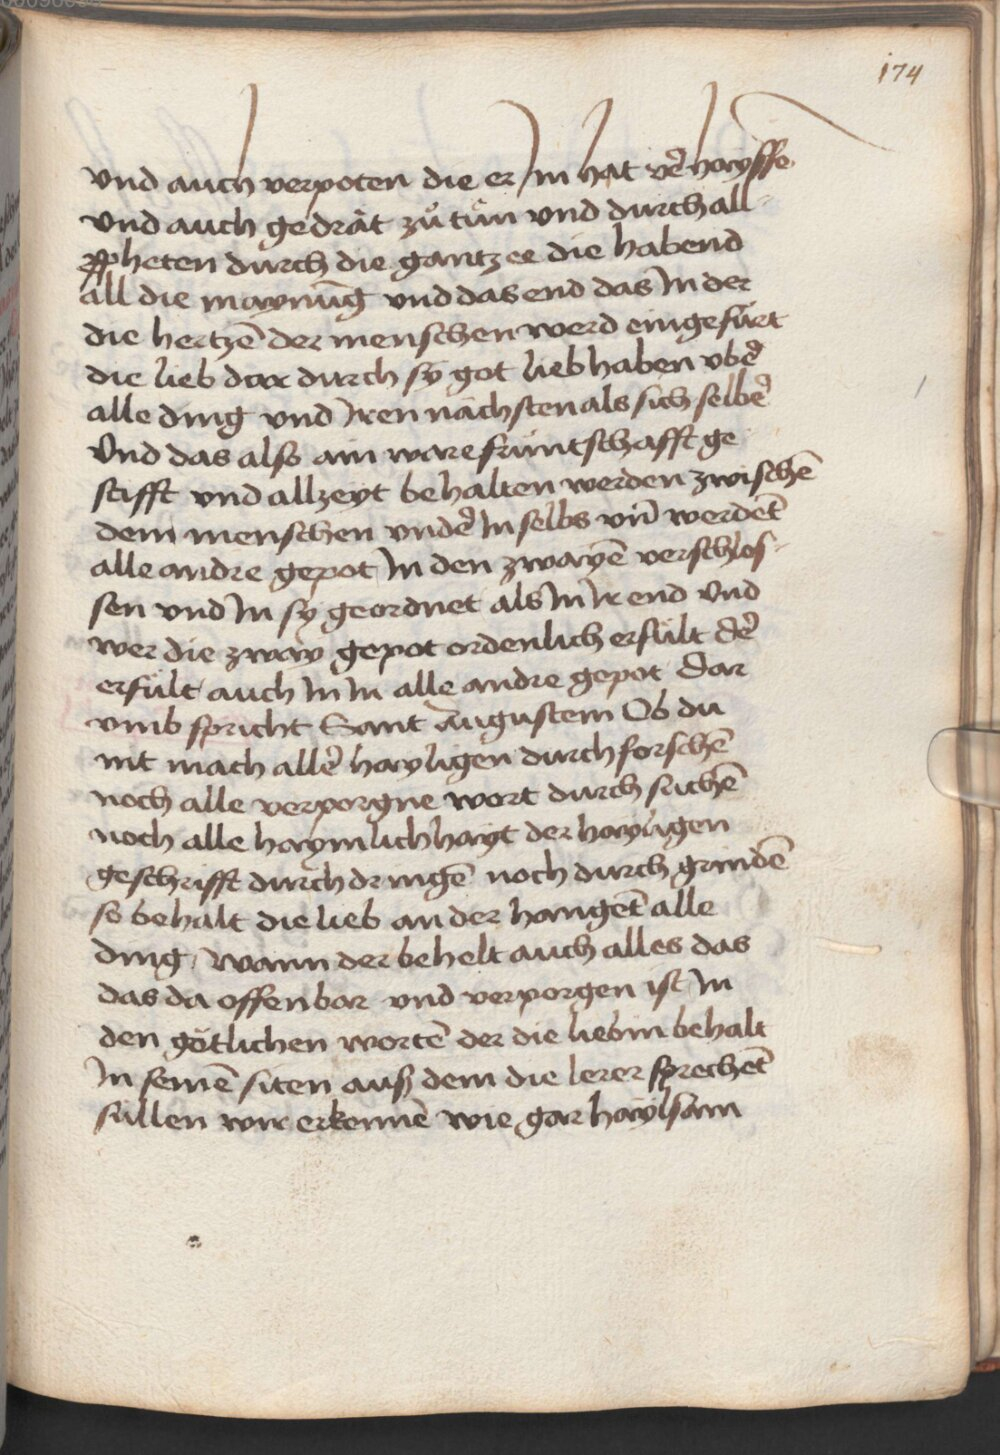 174
vnd auch verpoten die er In hat vͤrhayssē
vnd auch gedrät zů tůn vnd durch all
ꝓpheten durch die gantz ee die habend
all die maynūg vnd das end das In der
die hertzē der menschen werd eingefürt
die lieb dar durch sy got lieb haben vbe᷑
alle ding vnd Iren nächsten als sich selbe᷑
Vnd das also ain ware früntschafft ge
stifft vnd allzeyt behalten werden zwischē
dem menschen vnde᷑ In selbs vn̄ werdēt
alle andre gepot In den zwayē verschlos-
sen vnd In sy geordnet als In Ir end Vnd
wer die zway gepot ordenlich erfült de᷑
erfült auch In In alle andre gepot Dar
vmb spricht Sant Augustein Ob du
nit mach alle᷑ hayligen durch forschē
noch alle verporgne wort durch suchē
noch alle haymlichhayt der hayligen
geschrifft durch dringē noch durch grindē
so behalt die lieb an der hangēt alle
ding, wann der behelt auch alles das
das da offenbar vnd verporgen ist In
den götlichen wortē der die lieb in behalt
In seinē siten auß dem die lerer sprechēt
süllen wir erkennē wie gar haylsam